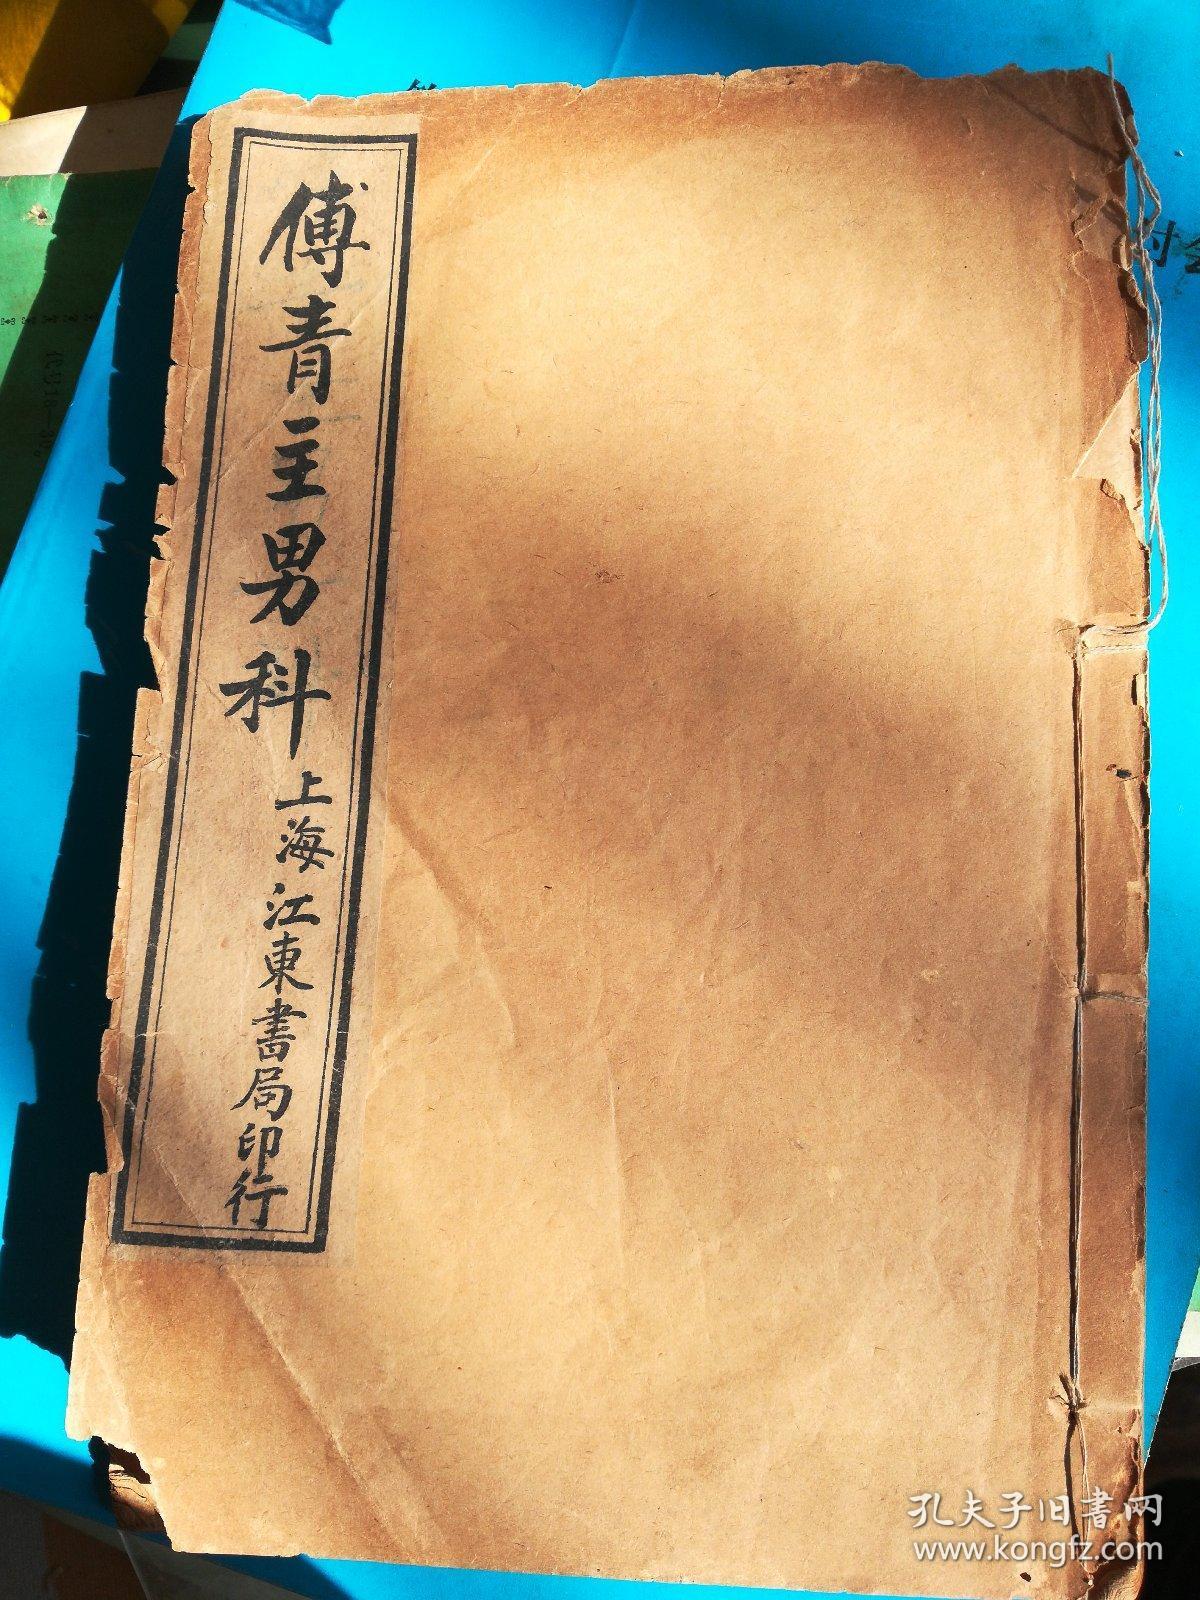 傅青主男科
上海江東書局印行
孔夫子旧書网
www.kongfz.com